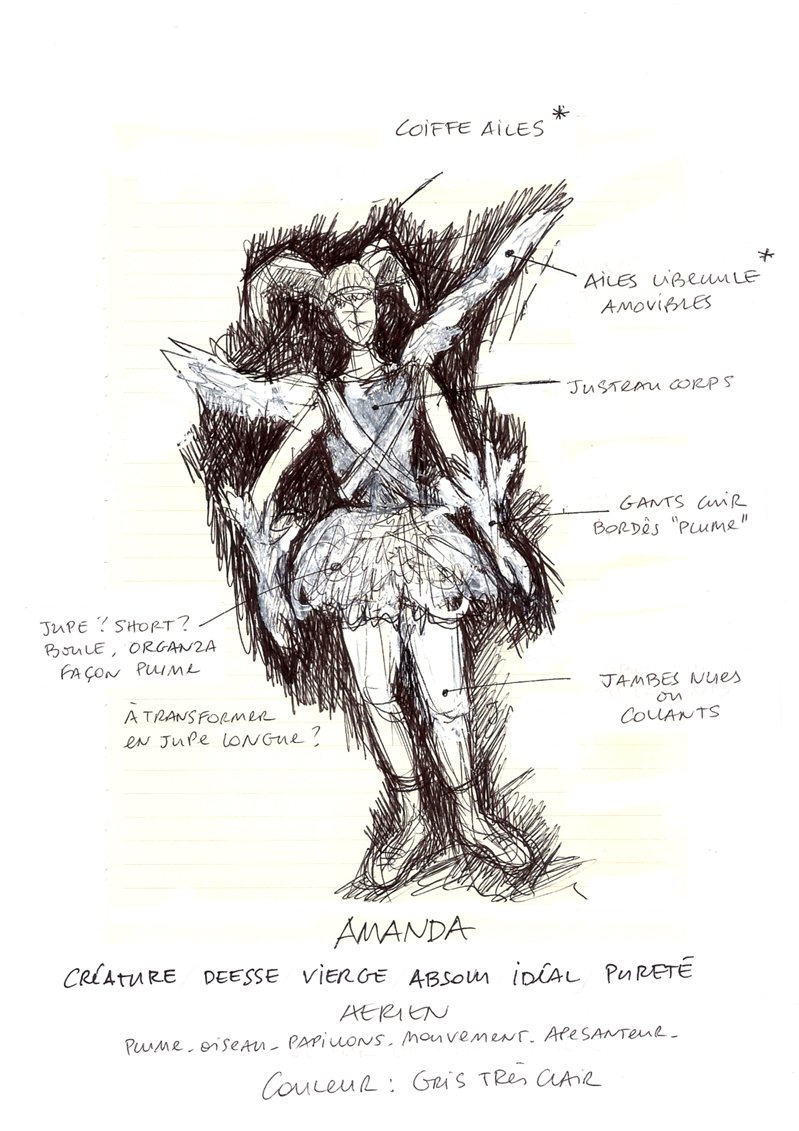 COIFFE AILES *
AILES LIBELLULE *
AMOVIBLES
JUSTEAU CORPS
GANTS CUIR
BORDÉS "PLUME"
JUPE ? SHORT ?
BOULE, ORGANZA
FAÇON PLUME
À TRANSFORMER
EN JUPE LONGUE ?
JAMBES NUES
OU
COLLANTS
AMANDA
CRÉATURE DEESSE VIERGE ABSOLU IDÉAL PURETÉ
AERIEN
PLUME - OISEAU - PAPILLONS - MOUVEMENT - APESANTEUR -
COULEUR : GRIS TRÈS CLAIR